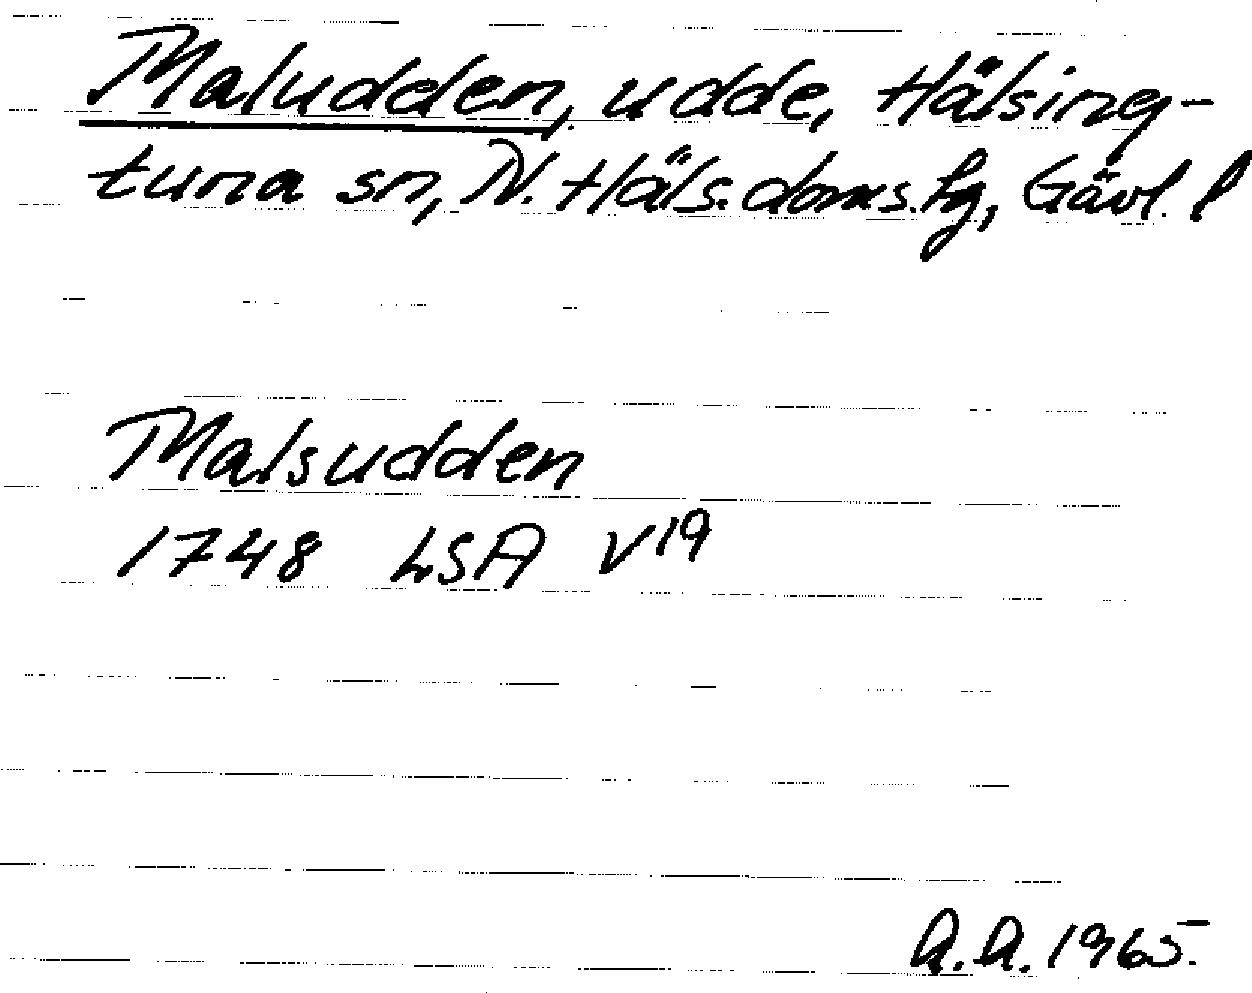 Maludden, udde, Hälsing-
tuna sn, N. Häls. doms. hg, Gävl. l
Malsudden
1748 LSA V19
A.A. 1965.